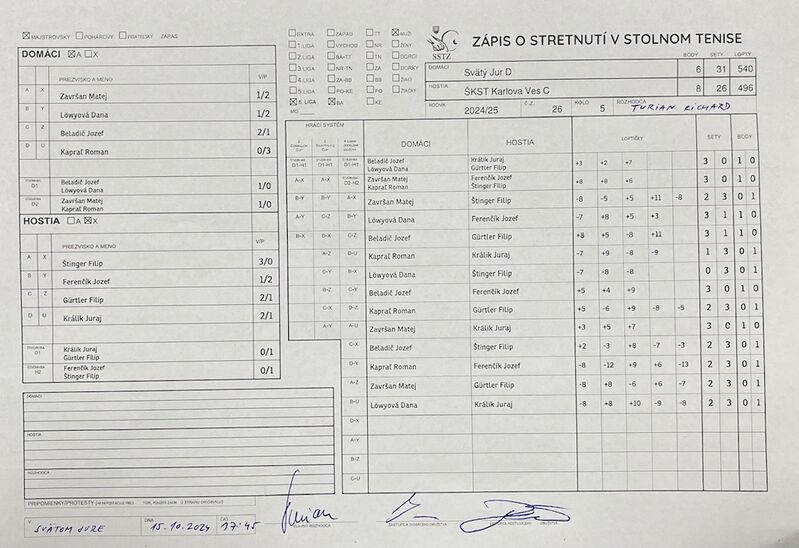 ☒ MAJSTROVSKÝ ☐ POHÁROVÝ ☐ PRIATEĽSKÝ ZÁPAS
DOMÁCI ☒ A ☐ X
PRIEZVISKO A MENO V/P
A X Završan Matej 1/2
B Y Löwyová Dana 1/2
C Z Beladič Jozef 2/1
D U Kapraľ Roman 0/3
D1 Beladič Jozef
Löwyová Dana 1/0
D2 Završan Matej
Kapraľ Roman 1/0
HOSTIA ☐ A ☒ X
PRIEZVISKO A MENO V/P
A X Štinger Filip 3/0
B Y Ferenčík Jozef 1/2
C Z Gürtler Filip 2/1
D U Králik Juraj 2/1
D1 Králik Juraj
Gürtler Filip 0/1
H2 Ferenčík Jozef
Štinger Filip 0/1
DOMÁCI
HOSTIA
ROZHODCA
PRIPOMIENKY/PROTESTY
V SVÄTOM JURE DŇA 15.10.2024 ČAS 17:45
☐ EXTRA ☐ ZÁPAD ☐ TT ☒ MUŽI
☐ 1. LIGA ☐ VÝCHOD ☐ NR ☐ ŽENY
☐ 2. LIGA ☐ BA-TT ☐ TN ☐ DORCI
☐ 3. LIGA ☐ NR-TN ☐ ZA ☐ DORKY
☐ 4. LIGA ☐ ZA-BB ☐ BB ☐ ŽIACI
☐ 5. LIGA ☐ PO-KE ☐ PO ☐ ŽIAČKY
☒ 6. LIGA ☒ BA ☐ KE
MO
SSTZ
ZÁPIS O STRETNUTÍ V STOLNOM TENISE
BODY SETY LOPTY
DOMÁCI Svätý Jur D 6 31 540
HOSTIA ŠKST Karlova Ves C 8 26 496
ROČNÍK 2024/25 Č.Z. 26 KOLO 5 ROZHODCA TURIAN RICHARD
HRACÍ SYSTÉM DOMÁCI HOSTIA LOPTIČKY SETY BODY
D1-H1 D1-H1 D1-H1 Beladič Jozef Králik Juraj +3 +2 +7 3 0 1 0
Löwyová Dana Gürtler Filip
A-X A-X D2-H2 Završan Matej Ferenčík Jozef +8 +8 +6 3 0 1 0
Kapraľ Roman Štinger Filip
B-Y B-Y A-X Završan Matej Štinger Filip -8 -5 +5 +11 -8 2 3 0 1
A-Y C-Z B-Y Löwyová Dana Ferenčík Jozef -7 +8 +5 +3 3 1 1 0
B-X B-X C-Z Beladič Jozef Gürtler Filip +8 +5 -8 +11 3 1 1 0
A-Z D-U Kapraľ Roman Králik Juraj -7 +9 -8 -9 1 3 0 1
C-Y B-X Löwyová Dana Štinger Filip -7 -8 -8 0 3 0 1
B-Z C-Y Beladič Jozef Ferenčík Jozef +5 +4 +9 3 0 1 0
C-X D-Z Kapraľ Roman Gürtler Filip +5 -6 +9 -8 -5 2 3 0 1
A-Y A-U Završan Matej Králik Juraj +3 +5 +7 3 0 1 0
C-X Beladič Jozef Štinger Filip +2 -3 +8 -7 -3 2 3 0 1
D-Y Kapraľ Roman Ferenčík Jozef -8 -12 +9 +6 -13 2 3 0 1
A-Z Završan Matej Gürtler Filip -8 +8 -6 +6 -7 2 3 0 1
B-U Löwyová Dana Králik Juraj -8 +8 +10 -9 -8 2 3 0 1
D-X
A-Y
B-Z
C-U
Turian